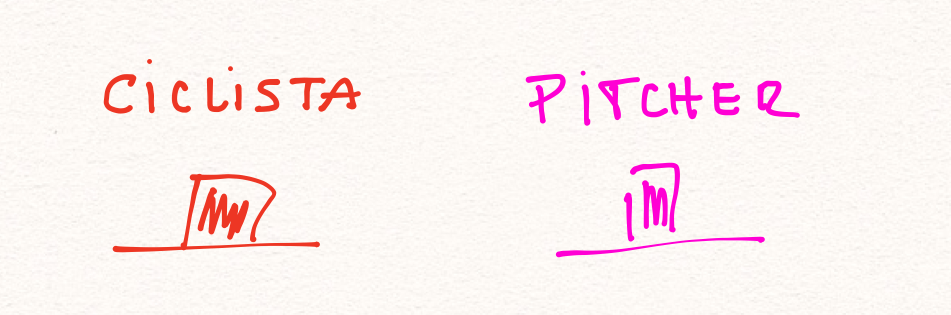 CiCLiSTA
PiTCHER